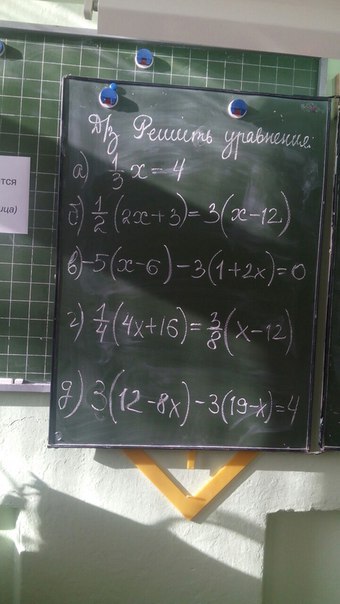 Д/з Решить уравнения:
тся
а) 1/3 x = 4
ица)
б) 1/2 (2x+3) = 3(x-12)
в) -5(x-6) - 3(1+2x) = 0
г) 1/4 (4x+16) = 3/8 (x-12)
д) 3(12-8x) - 3(19-x) = 4